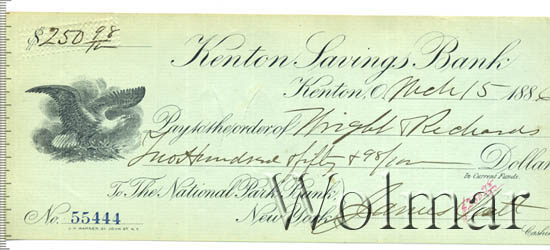 $250 98/10
Kenton Savings Bank
Kenton, O. Mch 15 1886
Pay to the order of Wright & Richards
Two Hundred & fifty & 98/100 Dollar
In Current Funds.
To The National Park Bank,
New York. James
No. 55444
Cashier
Wolmar